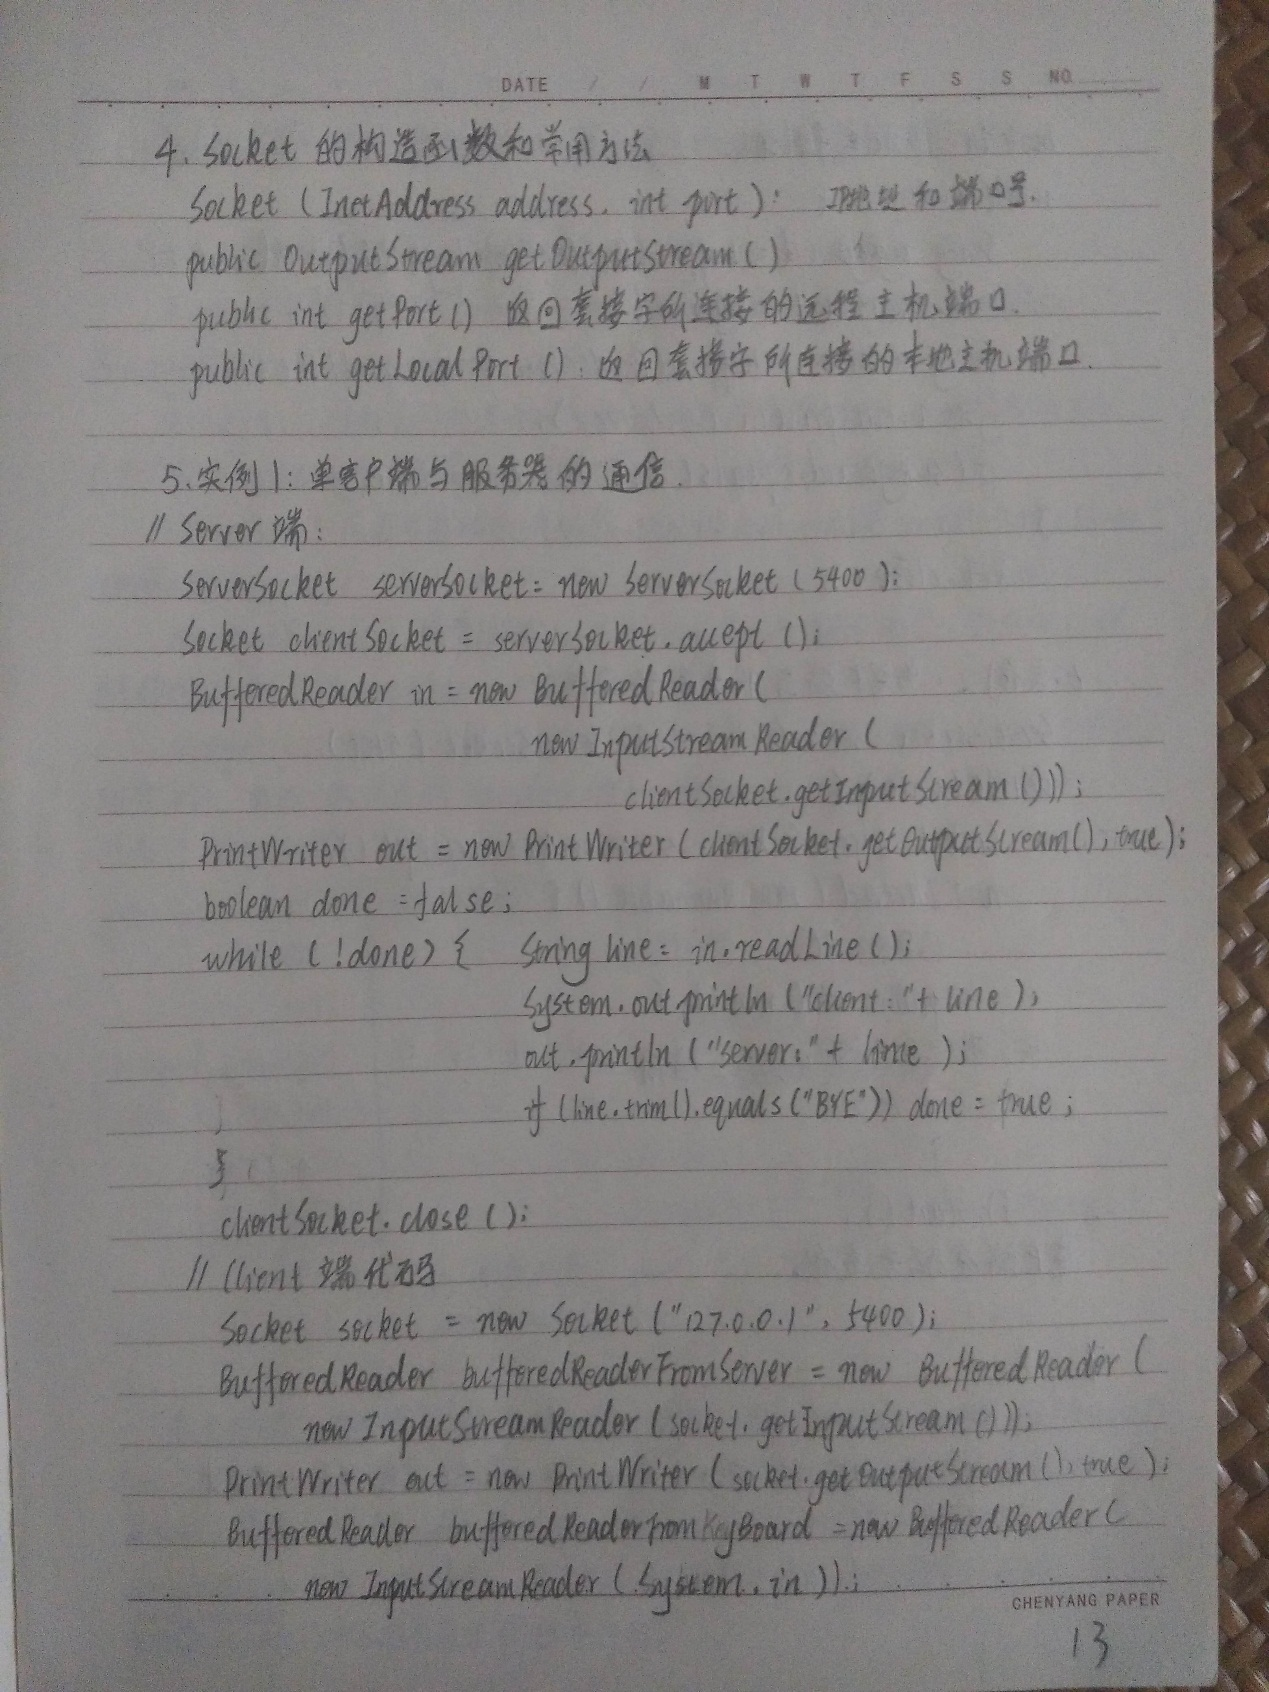 DATE / / M T W T F S S NO.
4. Socket 的构造函数和常用方法
Socket (InetAddress address, int port): IP地址和端口号.
public OutputStream getOutputStream()
public int getPort() 返回套接字所连接的远程主机端口.
public int getLocalPort(). 返回套接字所连接的本地主机端口.
5. 实例1: 单客户端与服务器的通信.
// Server 端:
ServerSocket serverSocket = new ServerSocket (5400);
Socket clientSocket = serverSocket.accept ();
BufferedReader in = new BufferedReader (
new InputStreamReader (
clientSocket.getInputStream ()));
PrintWriter out = new PrintWriter (clientSocket.getOutputStream(), true);
boolean done = false;
while (!done) { String line = in.readLine ();
System.out.println ("client:"+ line);
out.println ("server:" + line );
if (line.trim().equals ("BYE")) done = true ;
}
clientSocket.close ();
// Client 端代码
Socket socket = new Socket ("127.0.0.1", 5400);
BufferedReader bufferedReaderFromServer = new BufferedReader (
new InputStreamReader (socket.getInputStream ()));
PrintWriter out = new PrintWriter (socket.getOutputStream(), true);
BufferedReader bufferedReaderFromKeyBoard = new BufferedReader (
new InputStreamReader (System.in));
CHENYANG PAPER
13